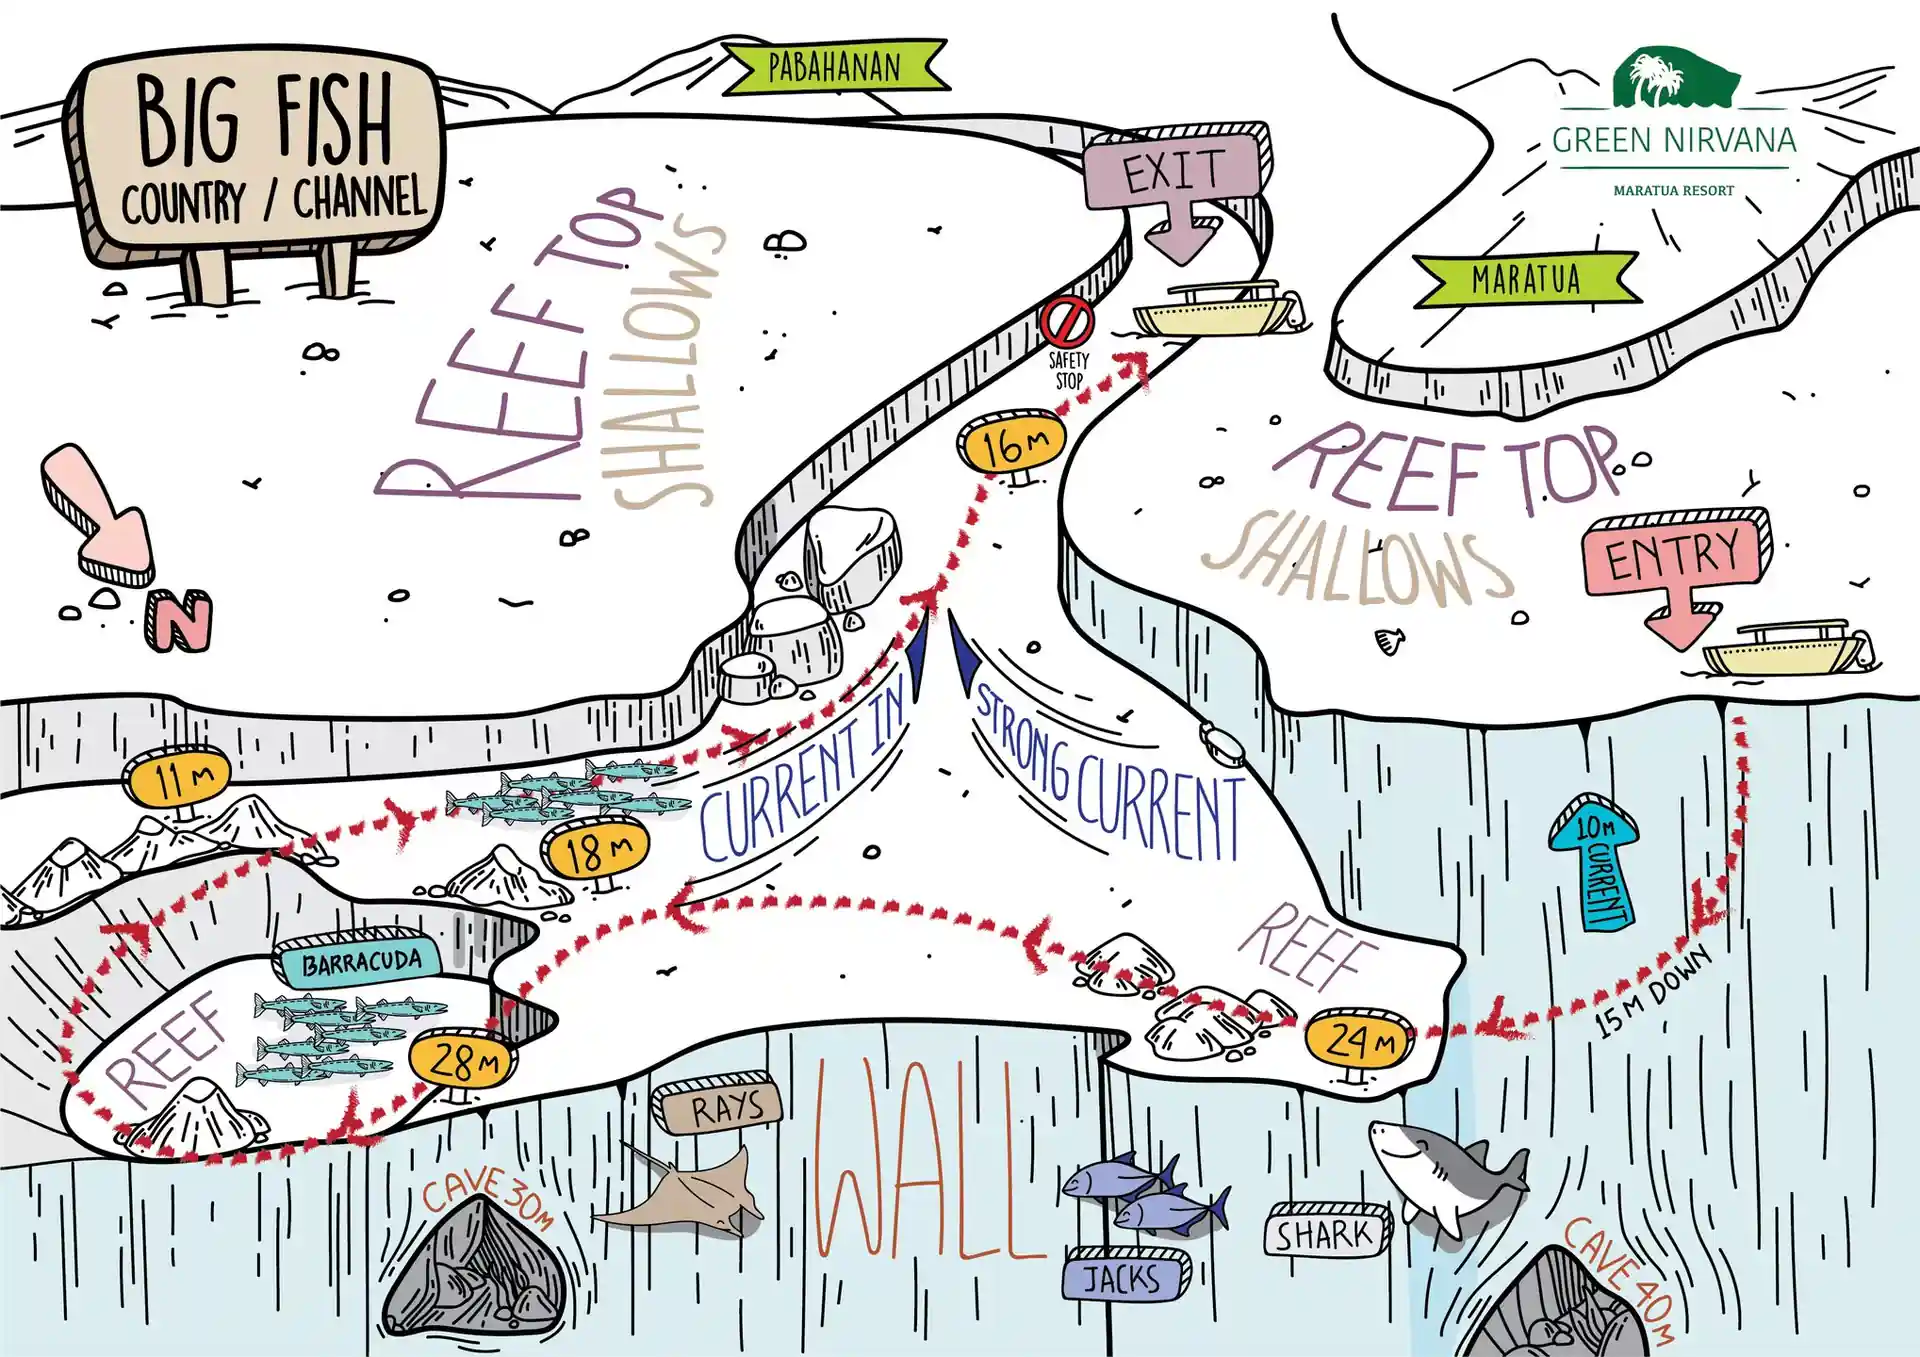 BIG FISH
COUNTRY / CHANNEL
PABAHANAN
EXIT
GREEN NIRVANA
MARATUA RESORT
MARATUA
REEF TOP
SHALLOWS
SAFETY
STOP
16M
REEF TOP
SHALLOWS
ENTRY
N
11M
18M
CURRENT IN
STRONG CURRENT
10M
CURRENT
15M DOWN
REEF
24M
BARRACUDA
REEF
28M
RAYS
WALL
CAVE 30M
JACKS
SHARK
CAVE 40M